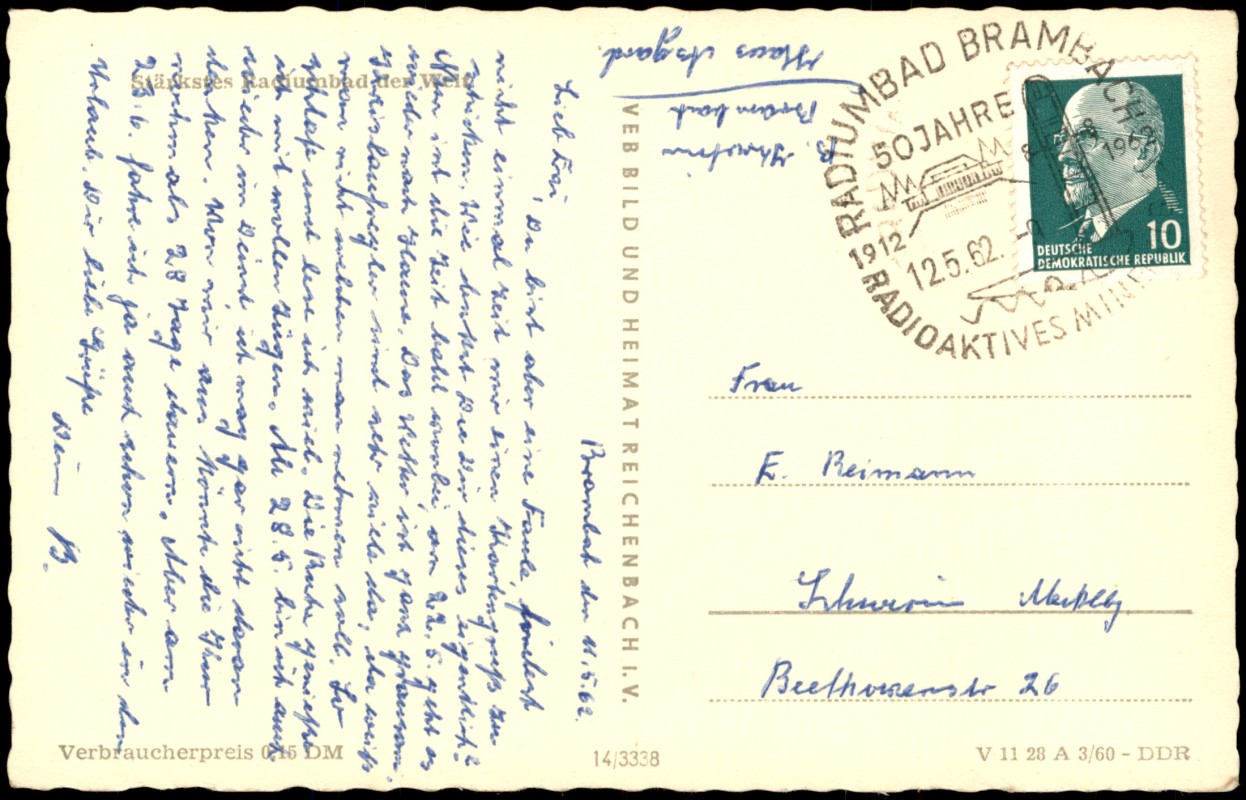 Stärkstes Radiumbad der Welt
Brambach den 11.5.62.
Lieb Evi,
Du bist aber eine Faule, findest
nicht einmal Zeit mir einen Kartengruß zu
schicken. Wie duftest Du Dir dieses eigentlich?
Nun ist die Zeit bald vorbei, am 22.5. geht es
wieder nach Hause. Das Wetter ist ganz grausam.
Eisheiligen sind sehr viele da, da weiß
man nicht welchen man nehmen soll. So
schlafe und lese ich viel. Die Ruhe genieße
ich mit vollen Zügen. Ab 28.5. bin ich auch
wieder im Dienst ich mag gar nicht daran
denken. Von mir aus könnte die Kur
nochmals 28 Tage dauern. Aber am
25.6. fahre ich ja auch schon wieder in den
Urlaub. Dir liebe Grüße
Dein B.
B. Christin
Brambach
Haus Asgard.
VEB BILD UND HEIMAT REICHENBACH I. V.
RADIUMBAD BRAMBACH
50 JAHRE
1912
1962
12.5.62.
RADIOAKTIVES MIN
DEUTSCHE
DEMOKRATISCHE REPUBLIK
10
Frau
E. Reimann
Schwerin Meckbg.
Beethovenstr 26
Verbraucherpreis 0,15 DM
14/3338
V 11 28 A 3/60 - DDR